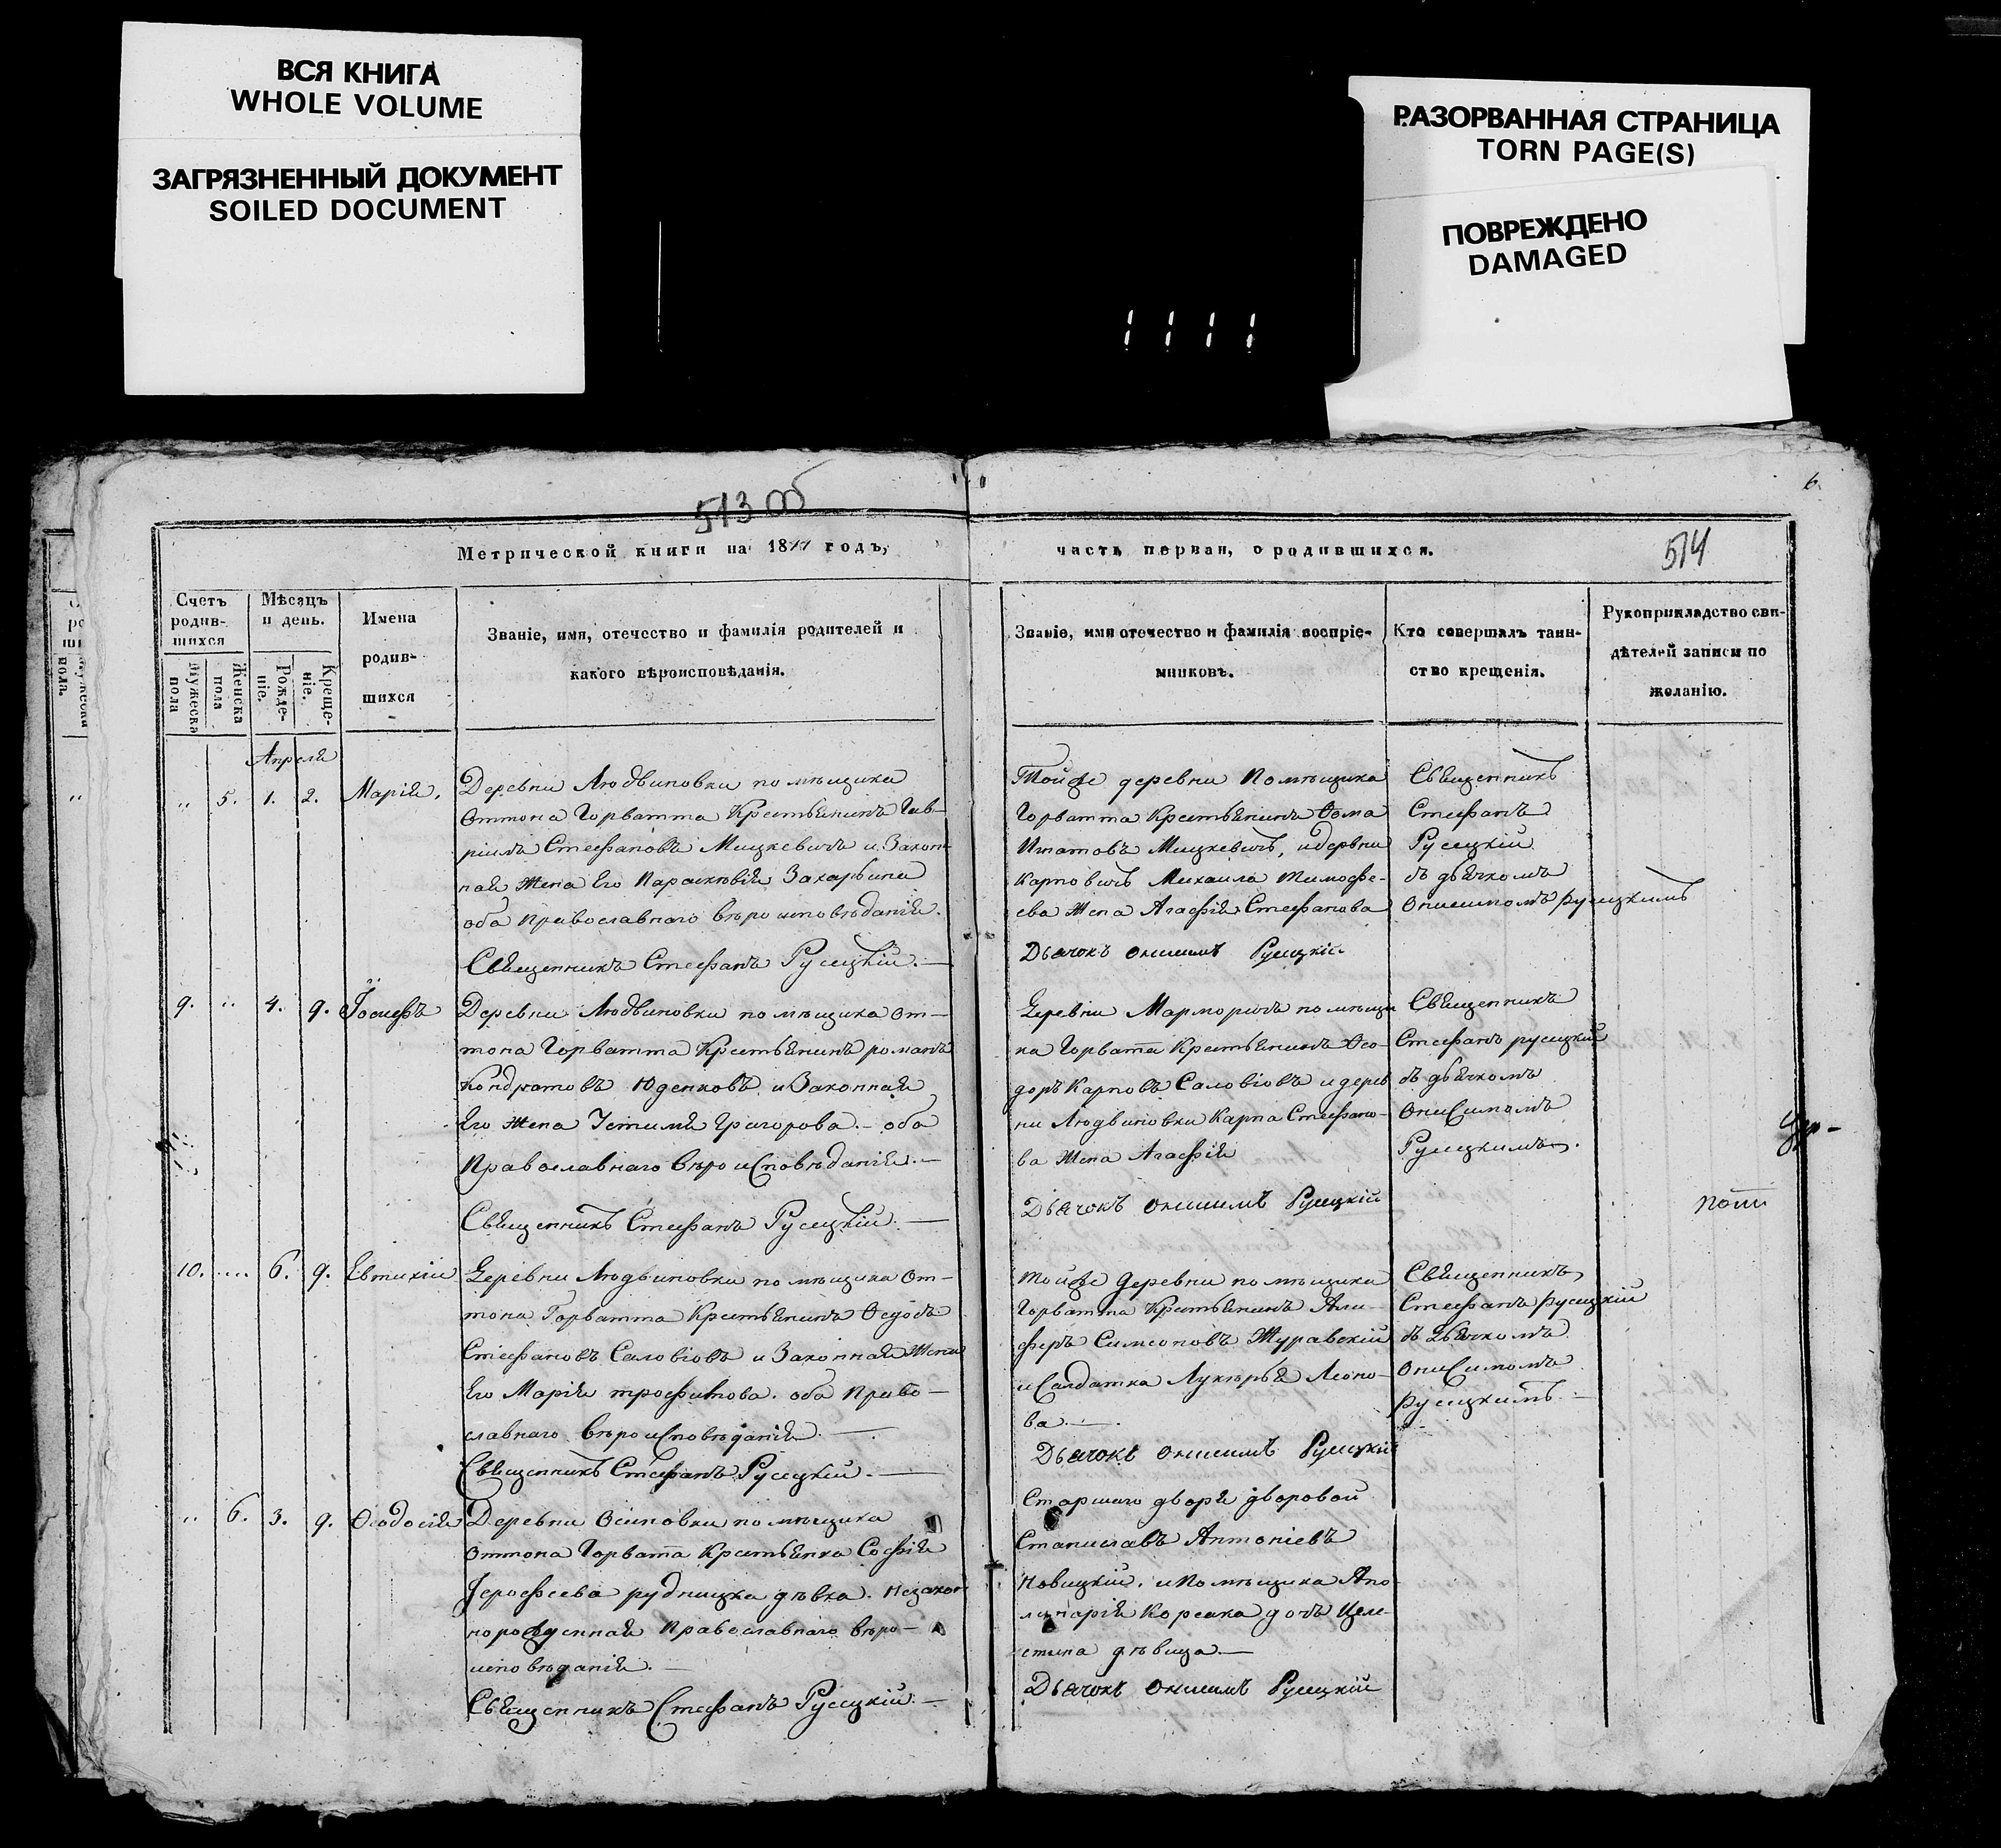 ВСЯ КНИГА
WHOLE VOLUME
ЗАГРЯЗНЕННЫЙ ДОКУМЕНТ
SOILED DOCUMENT
РАЗОРВАННАЯ СТРАНИЦА
TORN PAGE(S)
ПОВРЕЖДЕНО
DAMAGED
6
513 об
514
Метрической книги на 18 годъ,
часть первая, о родившихся.
Счетъ родив-шихся
Мужеска пола
Женска пола
Мѣсяцъ и день.
Рожде-ніе.
Креще-ніе.
Имена
родив-
шихся
Званіе, имя, отечество и фамилія родителей и
какого вѣроисповѣданія.
Званіе, имя отечество и фамилія воспріе-
мниковъ.
Кто совершалъ таин-
ство крещенія.
Рукоприкладство сви-
дѣтелей записи по
желанію.
Апреля
„ 5. 1. 2. Марія.
Деревни Людвиновки помѣщика
Оттона Горватта Крестьянинъ Гав-
ріилъ Стефановъ Мицкевичъ и Закон-
ная Жена Его Параскевія Захарьина
оба православнаго вѣроисповѣданія.
Священникъ Стефанъ Русецкій.
Тойже деревни Помѣщика
Горватта Крестьянинъ Фома
Игнатовъ Мицкевичъ, и дервни
Карповичъ Михаила Тимофе-
ева Жена Агафія Стефанова
Дьячокъ Онисимъ Русецкій
Священникъ
Стефанъ
Русецкій
съ дьячкомъ
Онисимомъ Русецкимъ
9. „ 4. 9. Іосифъ
Деревни Людвиновки помѣщика От-
тона Горватта Крестьянинъ романъ
Кондратовъ Юденковъ и Законная
Его Жена Устинія Григорова. оба
Православнаго вѣроисповѣданія.
Священникъ Стефанъ Русецкій.
Деревни помѣщи
ка Горвата Крестьянинъ Фео-
доръ Карповъ Саловіовъ и дерев
ни Людвиновки Карпа Стефано-
ва Жена Агафія
Дьячокъ Онисимъ Русецкій
Священникъ
Стефанъ русецкій
съ дьячкомъ
Онисимомъ
Русецкимъ.
10. „ 6. 9. Евтихій
Деревни Людвиновки помѣщика От-
тона Горватта Крестьянинъ
Стефановъ Саловіовъ и Законная Жена
Его Марія трофимова. оба Право-
славнаго вѣроисповѣданія.
Священникъ Стефанъ Русецкій.
Тойже деревни помѣщика
Горватта Крестьянинъ
Симеоновъ Журавскій
и Салдатка Лукерья Леоно-
ва.
Дьячокъ Онисимъ Русецкій
Священникъ
Стефанъ Русецкій
съ Дьячкомъ
Онисимомъ
Русецкимъ.
„ 6. 3. 9. Феодосія
Деревни Осиповки помѣщика
Оттона Горвата Крестьянка Софія
Ерофеева рудницка дѣвка. Незакон
норожденная Православнаго вѣро-
исповѣданія.
Священникъ Стефанъ Русецкій.
Старшаго двора дворовой
Станиславъ Антоніевъ
Новицкій. и Помѣщика Апо-
линарія Корсака дочь Целе-
стина дѣвица.
Дьячокъ Онисимъ Русецкій